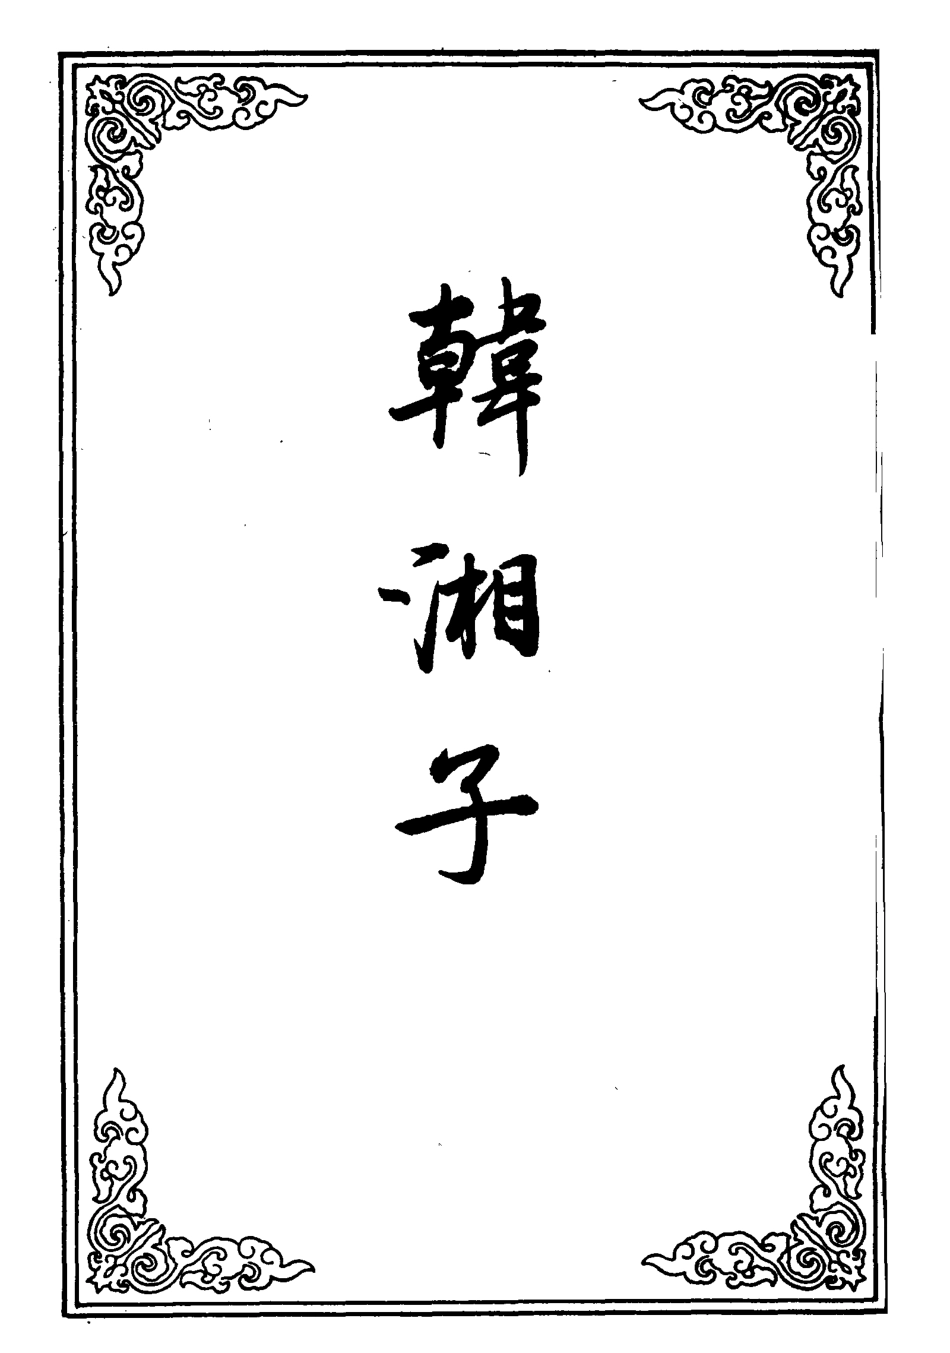 韓湘子